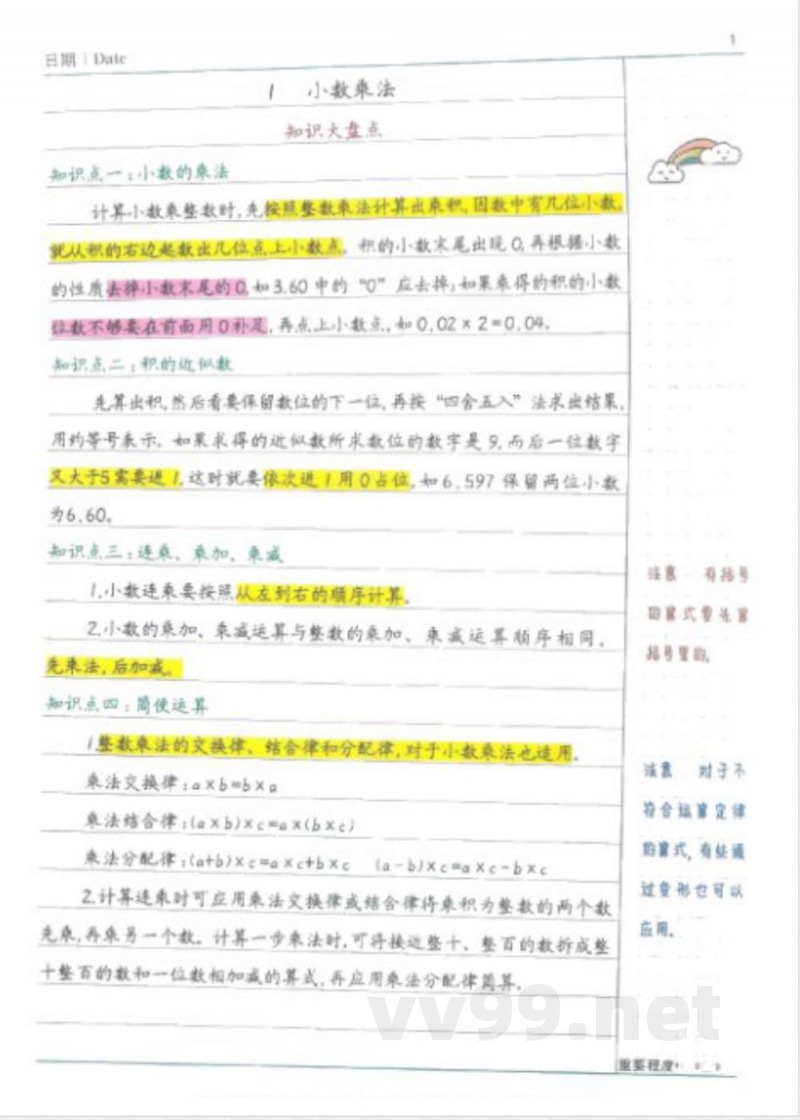 1
日期 | Date
1 小数乘法
知识大盘点
知识点一：小数的乘法
计算小数乘整数时,先按照整数乘法计算出乘积,因数中有几位小数,
就从积的右边起数出几位点上小数点。积的小数末尾出现0,再根据小数
的性质去掉小数末尾的0,如3.60中的“0”应去掉;如果乘得的积的小数
位数不够要在前面用0补足,再点上小数点,如0.02×2=0.04。
知识点二：积的近似数
先算出积,然后看要保留数位的下一位,再按“四舍五入”法求出结果,
用约等号表示。如果求得的近似数所求数位的数字是9,而后一位数字
又大于5需要进1,这时就要依次进1用0占位,如6.597保留两位小数
为6.60。
知识点三：连乘、乘加、乘减
1.小数连乘要按照从左到右的顺序计算。
2.小数的乘加、乘减运算与整数的乘加、乘减运算顺序相同。
先乘法,后加减。
知识点四：简便运算
1.整数乘法的交换律、结合律和分配律,对于小数乘法也适用。
乘法交换律:a×b=b×a
乘法结合律:(a×b)×c=a×(b×c)
乘法分配律:(a+b)×c=a×c+b×c (a-b)×c=a×c-b×c
2.计算连乘时可应用乘法交换律或结合律将乘积为整数的两个数
先乘,再乘另一个数。计算一步乘法时,可将接近整十、整百的数拆成整
十整百的数和一位数相加减的算式,再应用乘法分配律简算。
注意 有括号
的算式要先算
括号里的。
注意 对于不
符合运算定律
的算式,有些通
过变形也可以
应用。
vv99.net
重要程度 1 2 3